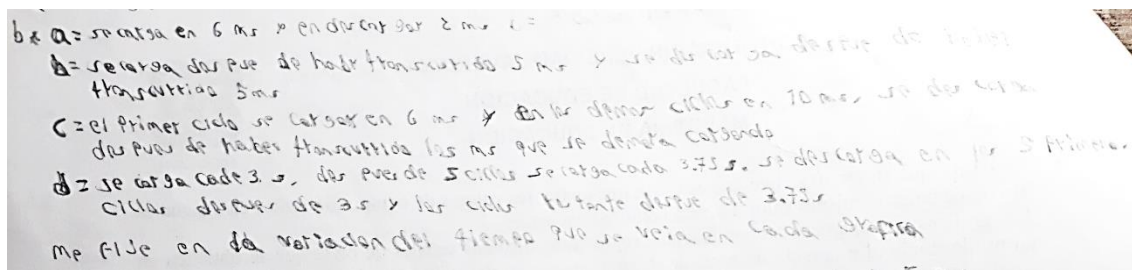 b* a= se carga en 6 ms y en descargar 2 ms
b= se carga despue de haber transcurrido 5 ms y se descarga despue de haber
transcurrido 5ms
C= el primer ciclo se cargar en 6 ms y en los demas ciclos en 10 ms, se des carga
despues de haber transcurrido los ms que se demora cargando
d= se carga cada 3 s, des pues de 5 ciclos se carga cada 3.75 s. se descarga en los 5 primeros
ciclos despues de 3 s y los ciclos restante despue de 3.75s
me fije en la variacion del tiempo que se veia en cada grafica